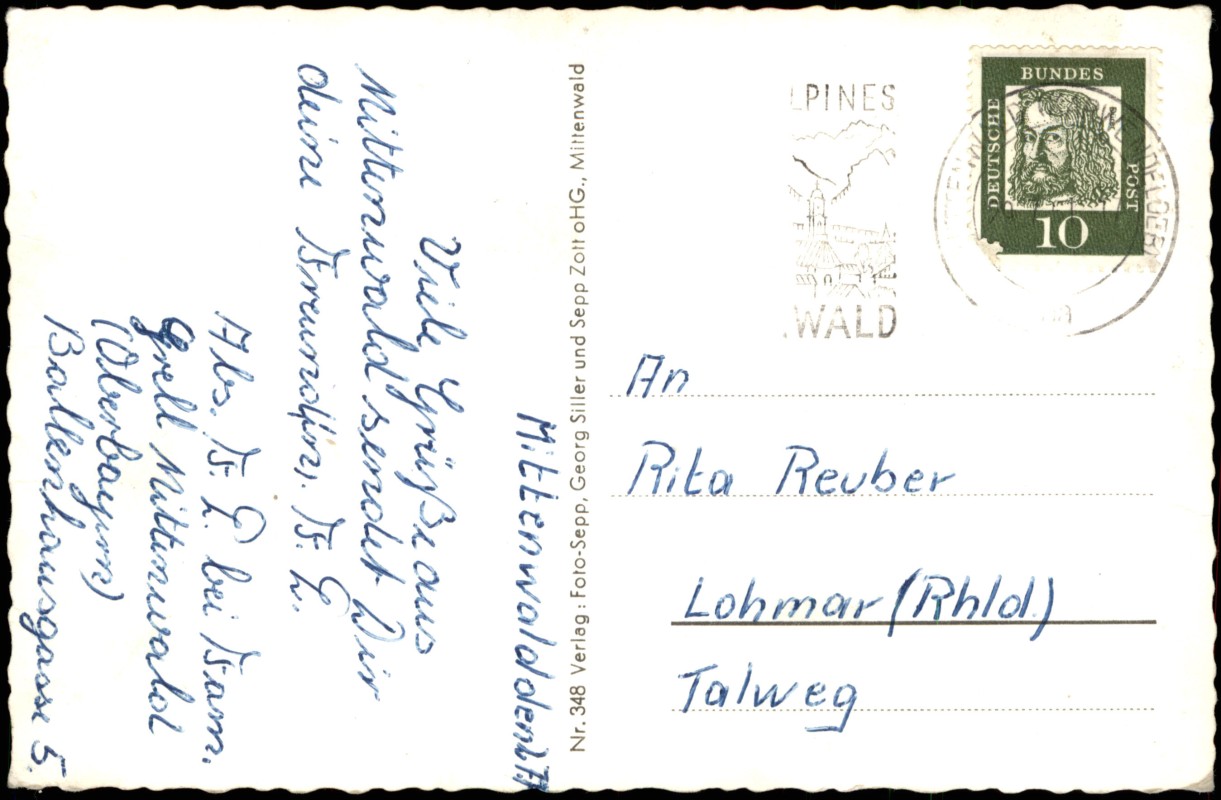 Mittenwald den 2.7.
Viele Grüße aus
Mittenwald sendet Dir
deine Freundin. F. L.
Abs. F. L. bei Fam.
Grell Mittenwald
(Oberbayern)
Ballenhausgasse 5.
Nr. 348 Verlag: Foto-Sepp, Georg Siller und Sepp Zott oHG., Mittenwald
LPINES
WALD
DEUTSCHE
BUNDES
POST
10
An
Rita Reuber
Lohmar (Rhld.)
Talweg